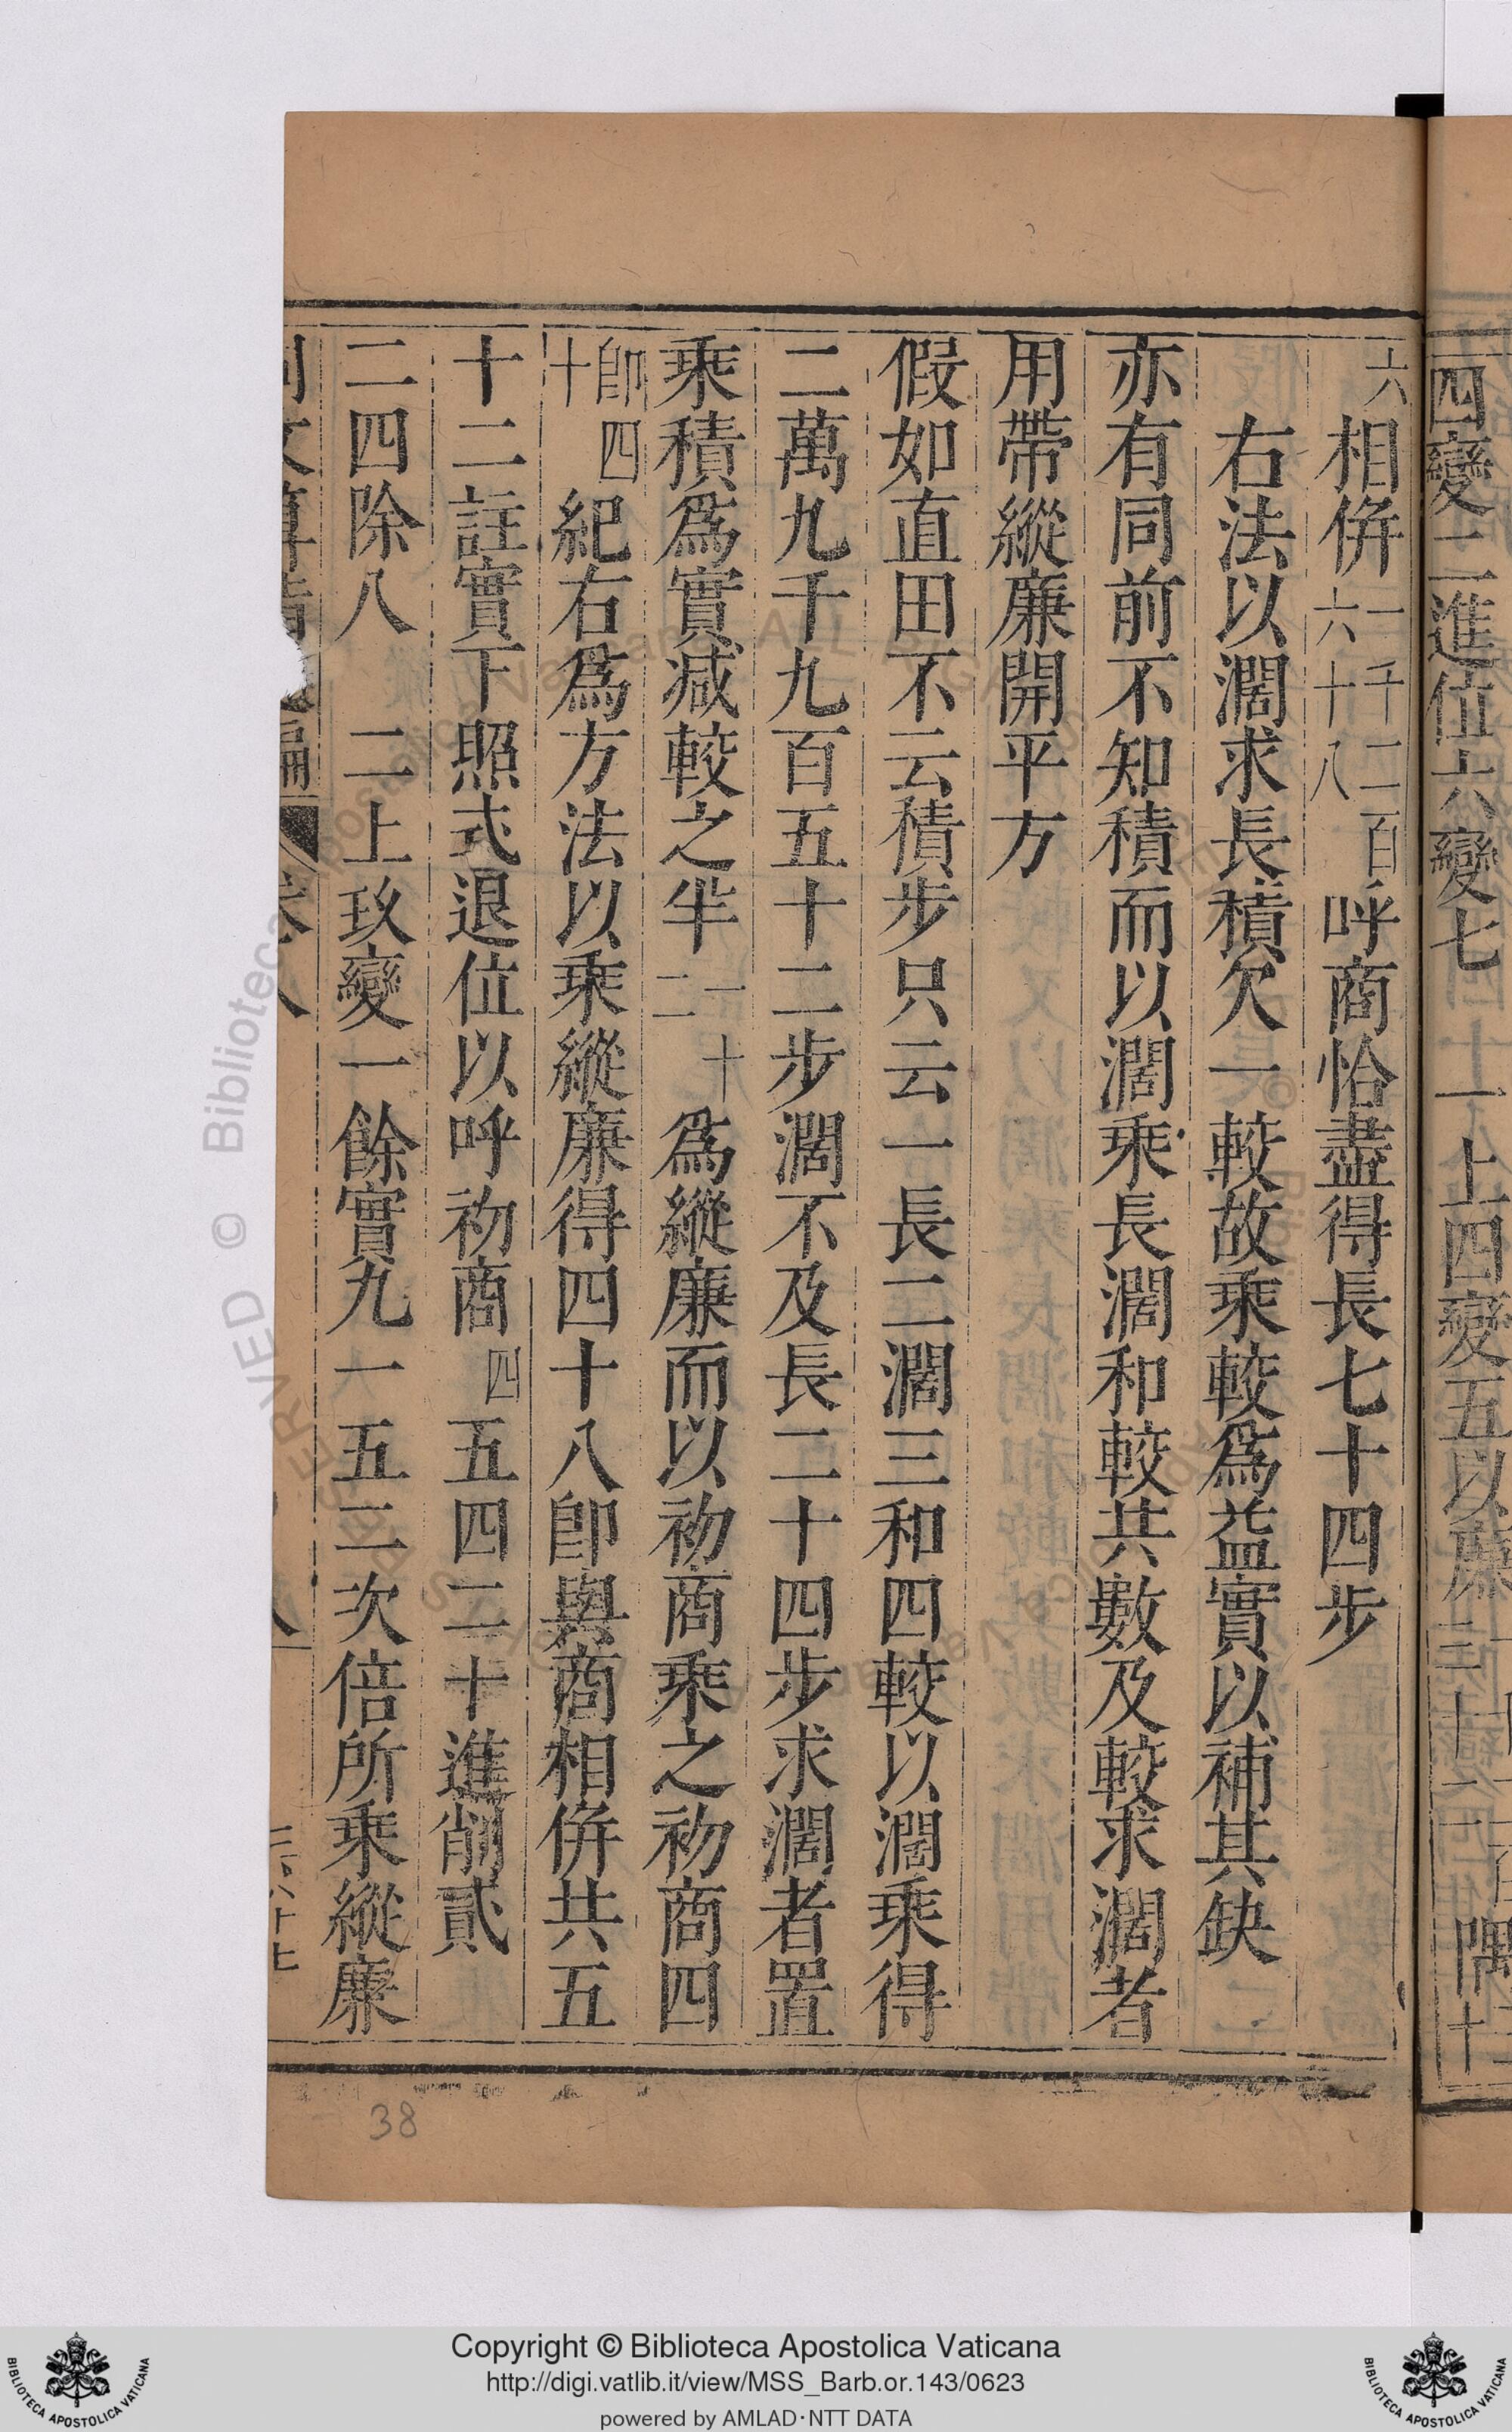 四變二進位六變七 一上四變五以廉三十二
六相併一千二百六十八呼商恰盡得長七十四步
右法以濶求長積欠一較故乘較爲益實以補其缺
亦有同前不知積而以濶乘長濶和較共數及較求濶者
用帶縱廉開平方
假如直田不云積步只云一長二濶三和四較以濶乘得
二萬九千九百五十二步濶不及長二十四步求濶者置
乘積爲實减較之半一十二爲縱廉而以初商乘之初商四
卽四十紀右爲方法以乘縱廉得四十八卽與商相併共五
十二註實下照式退位以呼初商四五四二十進削貳
二四除八 二上玖變一餘實九一五二次倍所乘縱廉
38
Copyright © Biblioteca Apostolica Vaticana
http://digi.vatlib.it/view/MSS_Barb.or.143/0623
powered by AMLAD·NTT DATA
BIBLIOTECA APOSTOLICA VATICANA
BIBLIOTECA APOSTOLICA VATICANA